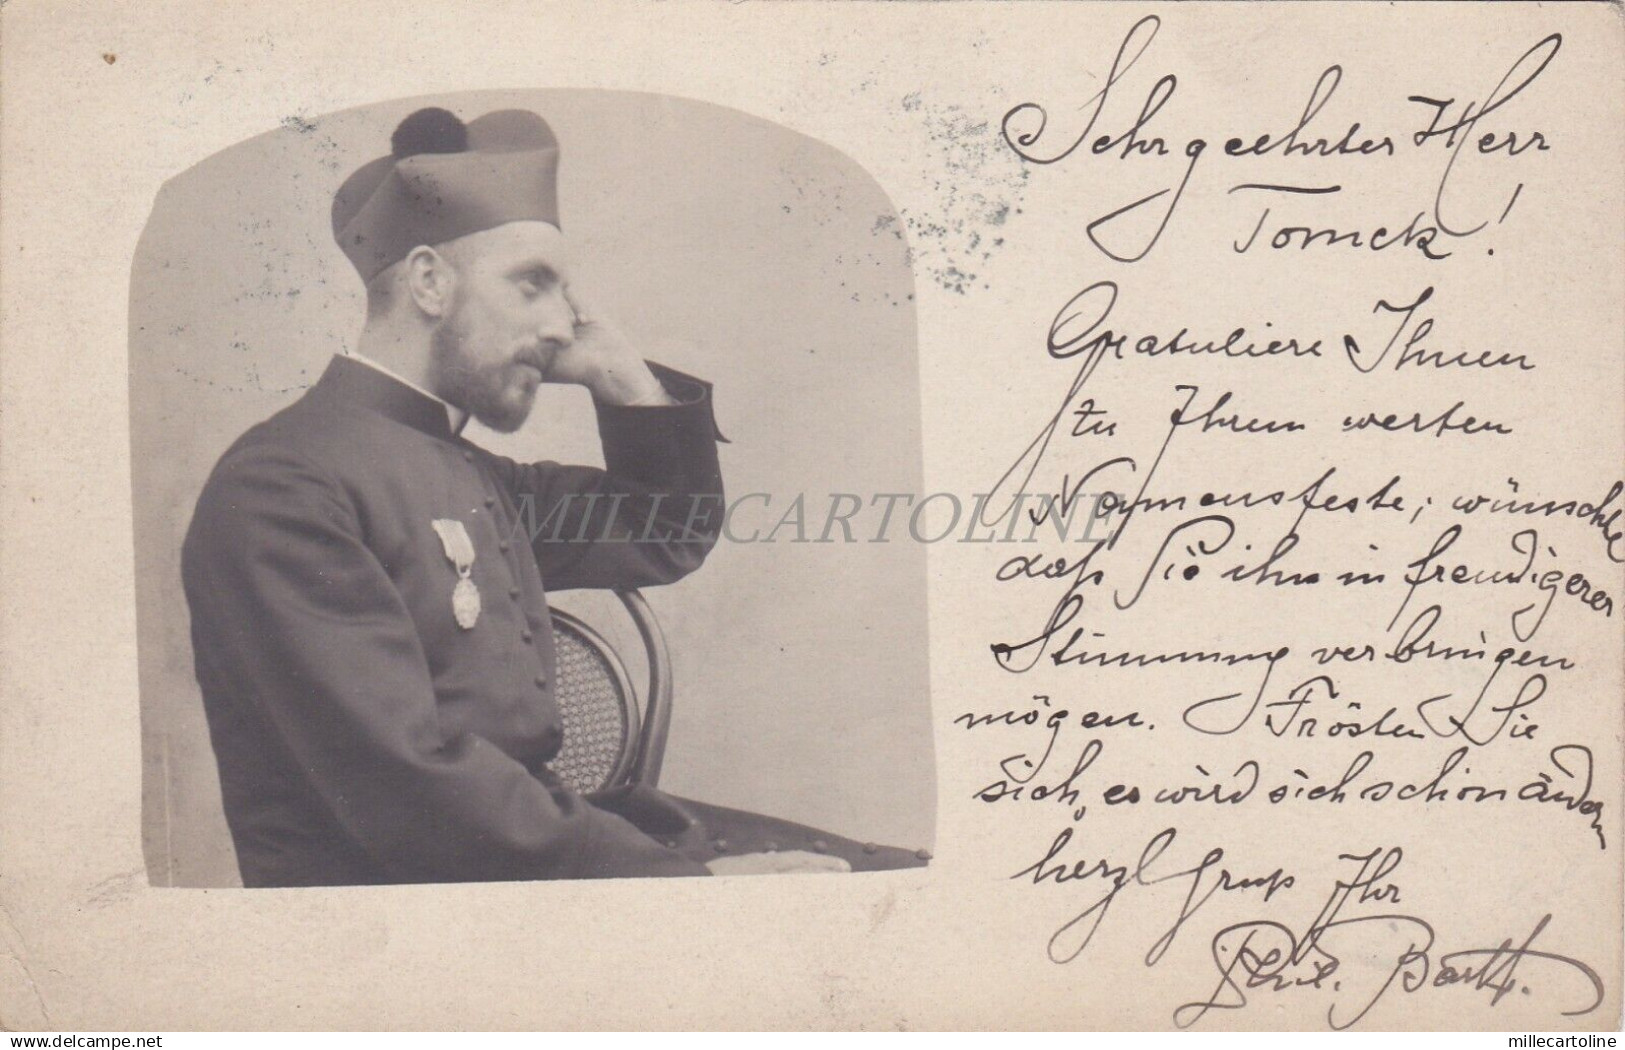 Sehr geehrter Herr
Tomek!
Gratuliere Ihnen
zu Ihrem werten
Namensfeste; wünsche
daß Sie ihn in freudigerer
Stimmung verbringen
mögen. Trösten Sie
sich, es wird sich schon ändern
herzl Gruß Ihr
Phil. Barth.
MILLECARTOLINE
delcampe.net
millecartoline